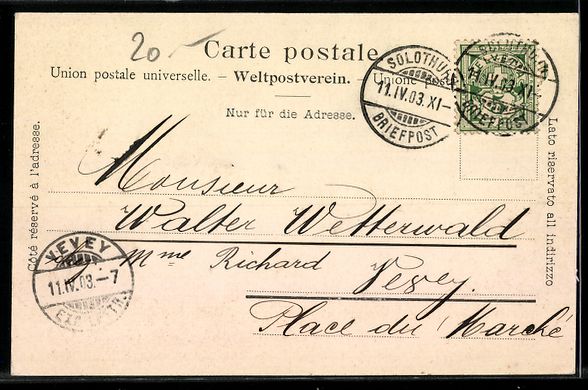 20.-
Carte postale
Union postale universelle. – Weltpostverein. – Unione postale
Nur für die Adresse.
Côté réservé à l'adresse.
Lato riservato all indirizzo
SOLOTHURN
11.IV.03.XI–
BRIEFPOST
SOLOTHURN
HELVETIA
11.IV.03.XI–
BRIEFPOST
Monsieur
Walter Wetterwald
Mme Richard
Vevey.
Place du Marché
VEVEY
11.IV.03.–7